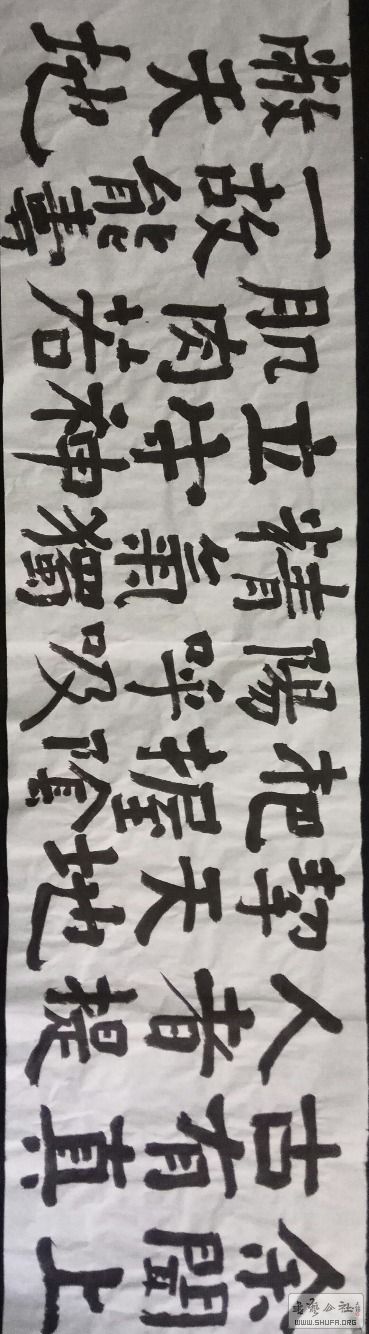 余聞上
古有真
人者提
挈天地
把握陰
陽呼吸
精氣獨
立守神
肌肉若
一故能壽
敝天地
书艺公社
WWW.SHUFA.ORG